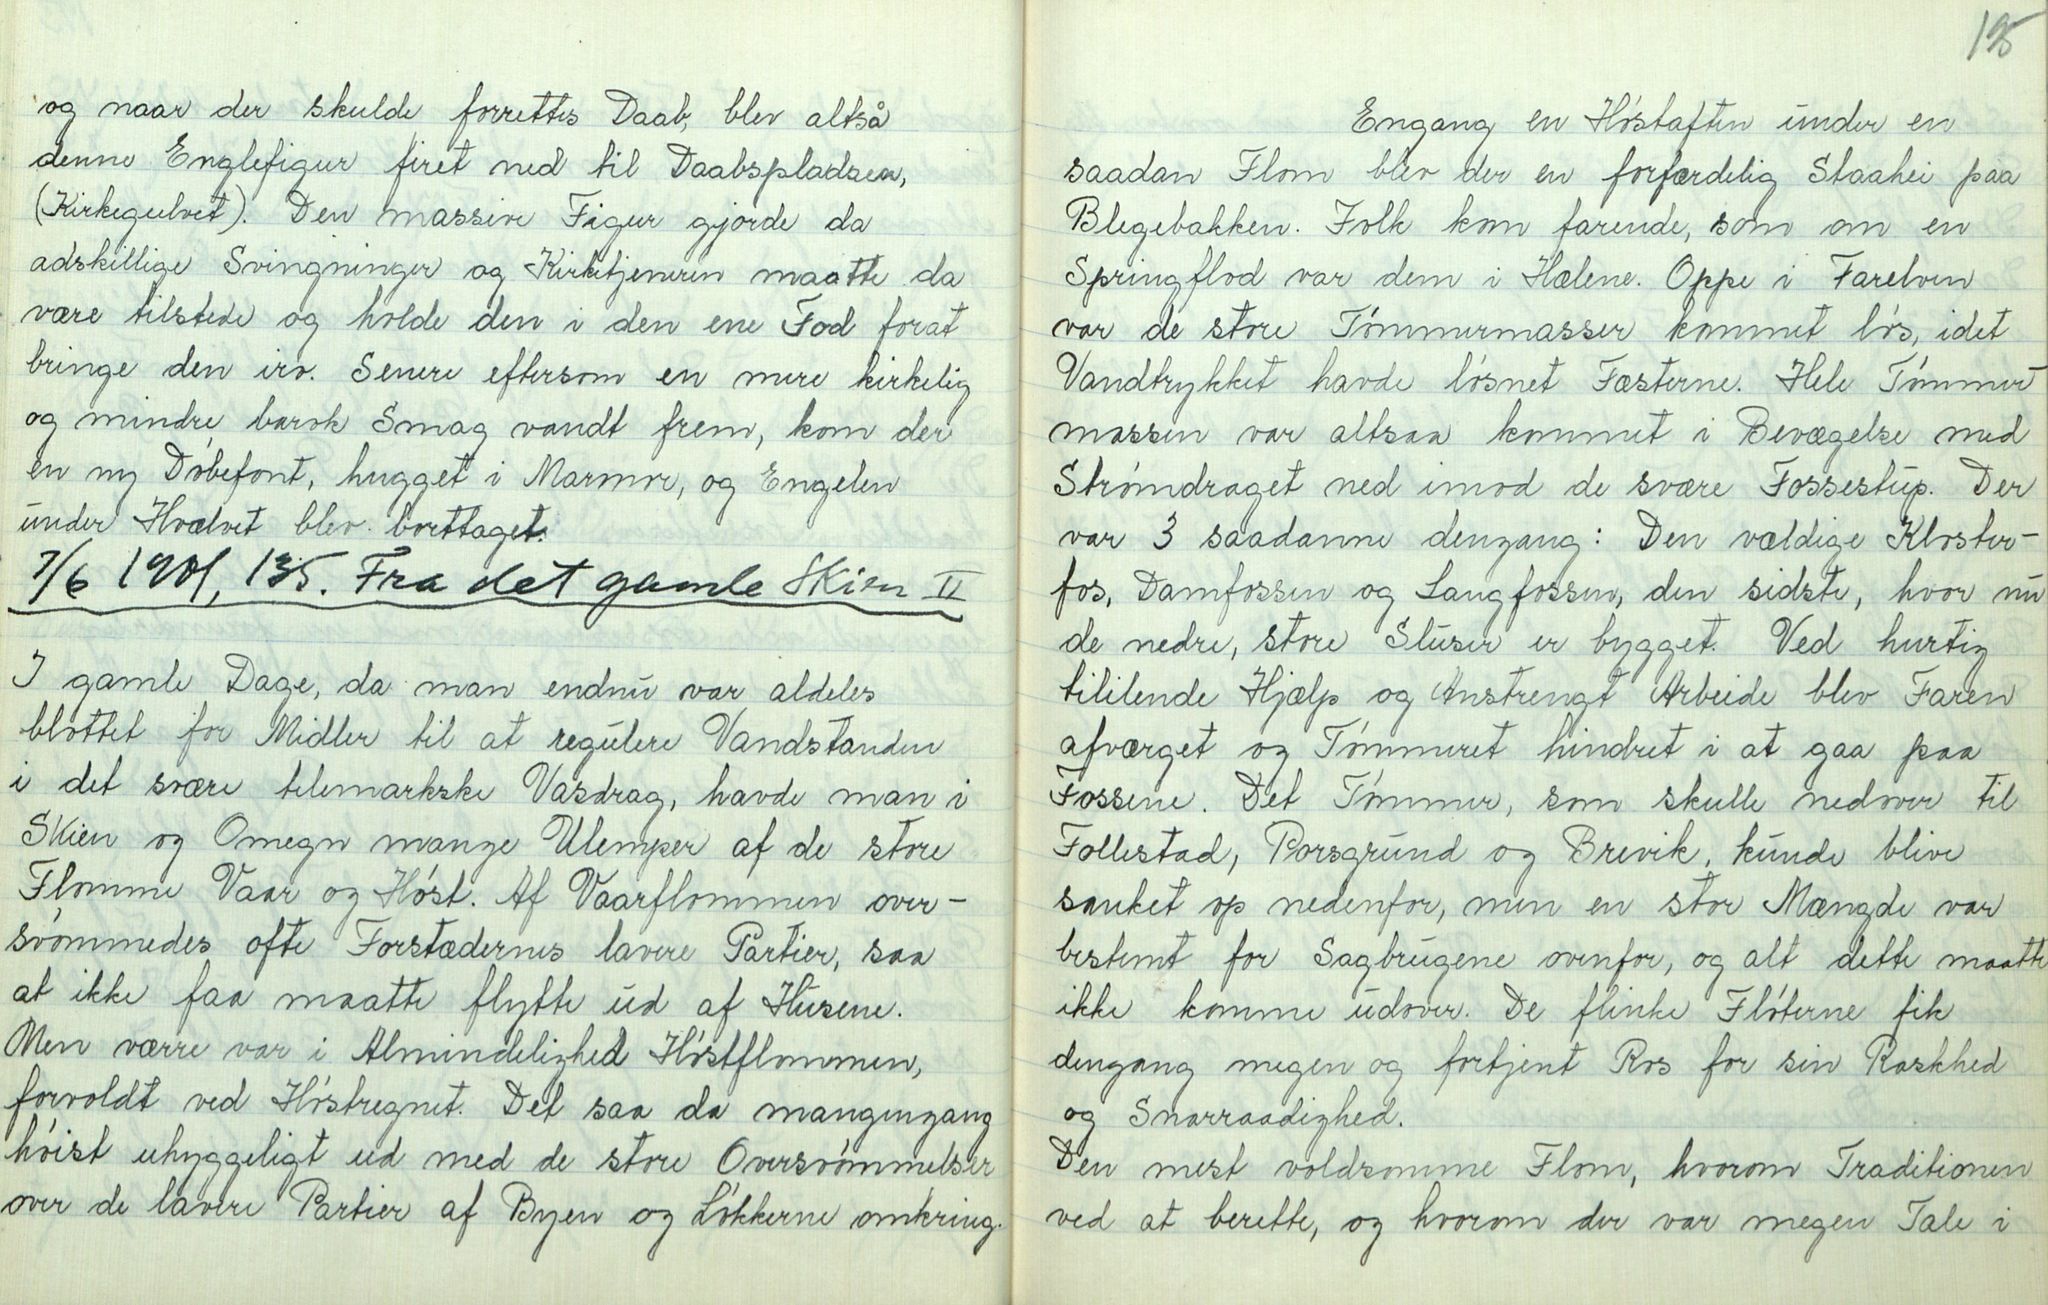 og naar der skulde forrettes Daab, blev altså
denne Englefigur firet ned til Daabspladsen,
(Kirkegulvet). Den massive Figur gjorde da
adskillige Svingninger og Kirketjeneren maatte da
være tilstede og holde den i den ene Fod forat
bringe den iro. Senere eftersom en mere kirkelig
og mindre barok Smag vandt frem, kom der
en ny Døbefont, hugget i Marmor, og Engelen
under Hvælvet blev borttaget.
7/6 1901, 135. Fra det gamle Skien II
I gamle Dage, da man endnu var aldeles
blottet for Midler til at regulere Vandstanden
i det svære telemarkske Vasdrag, havde man i
Skien og Omegn mange Ulemper af de store
Flomme Vaar og Høst. Af Vaarflommen over-
svømmedes ofte Forstædernes lavere Partier, saa
at ikke faa maatte flytte ud af Husene.
Men værre var i Almindelighed Høstflommen,
forvoldt ved Høstregnet. Det saa da mangengang
høist uhyggeligt ud med de store Oversvømmelser
over de lavere Partier af Byen og Løkkerne omkring.
Engang en Høstaften under en
saadan Flom blev der en forfærdelig Staahei paa
Blegebakken. Folk kom farende, som om en
Springflod var dem i Hælene. Oppe i Farelven
var de store Tømmermasser kommet løs, idet
Vandtrykket havde løsnet Fæsterne. Hele Tømmer
massen var altsaa kommet i Bevægelse med
Strømdraget ned imod de svære Fossestup. Der
var 3 saadanne dengang: Den vældige Kloster-
fos, Damfossen og Langfossen, den sidste, hvor nu
de nedre, store Sluser er bygget. Ved hurtig
tililende Hjælp og Anstrengt Arbeide blev Faren
afværget og Tømmeret hindret i at gaa paa
Fossene. Det Tømmer, som skulle nedover til
Follestad, Porsgrund og Brevik, kunde blive
sanket op nedenfor, men en stor Mængde var
bestemt for Sagbrugene ovenfor, og alt dette maatte
ikke komme udover. De flinke Fløterne fik
dengang megen og fortjent Ros for sin Raskhed
og Snarraadighed.
Den mest voldsomme Flom, hvorom Traditionen
ved at berette, og hvorom der var megen Tale i